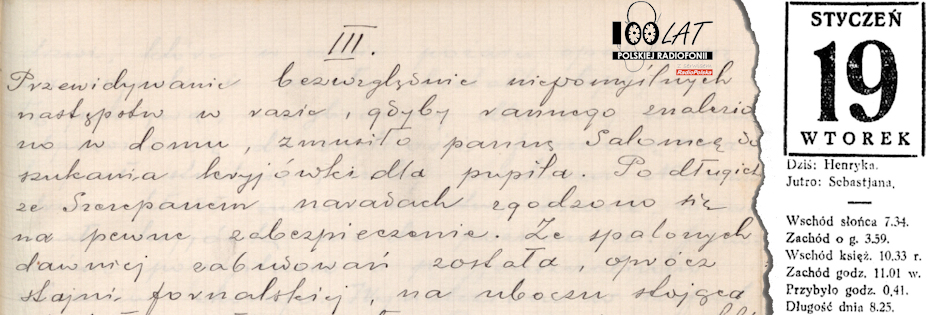 III.
Przewidywanie bezwzględnie niepomyślnych
następstw w razie, gdyby rannego znalezio
no w domu, zmusiło pannę Salomeę do
szukania kryjówki dla pupila. Po długich
ze Szczepanem naradach zgodzono się
na pewne zabezpieczenie. Ze spalonych
dawniej zabudowań została, oprócz
stajni fornalskiej, na uboczu stojąca
100 LAT
POLSKIEJ RADIOFONII
RadioPolska
STYCZEŃ
19
WTOREK
Dziś: Henryka.
Jutro: Sebastjana.
Wschód słońca 7.34.
Zachód o g. 3.59.
Wschód księż. 10.33 r.
Zachód godz. 11.01 w.
Przybyło godz. 0,41.
Długość dnia 8.25.